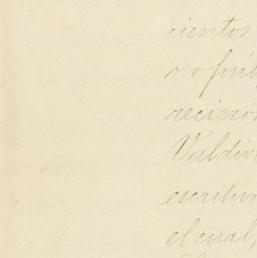 cientos
no
reciero
Valdiv
escritur
el cual,